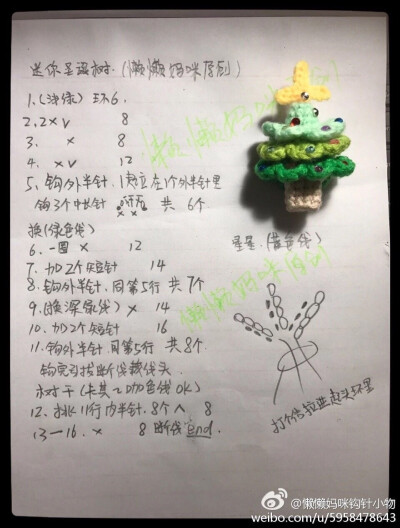 迷你圣诞树.(懒懒妈咪原创)
1.(浅绿) 环6.
2. 2×v 8
3. × 8
4. ×v 12
5. 钩外半针,1起立,在1个外半针里
钩3个中长针 共 6个
换(绿色线)
6. 一圈 × 12
星星.(黄色线)
7. 加2个短针 14
8. 钩外半针,同第5行 共7个
9. (换深绿线) × 14
10. 加2个短针 16
11. 钩外半针,同第5行 共8个.
钩完引拔断线藏线头
树干(卡其又咖色线OK)
12. 挑11行内半针.8个∧. 8
13-16. × 8 断线.End.
懒懒妈咪原创
懒懒妈咪原创
懒懒妈咪原创
@懒懒妈咪钩针小物
weibo.com/u/5958478643